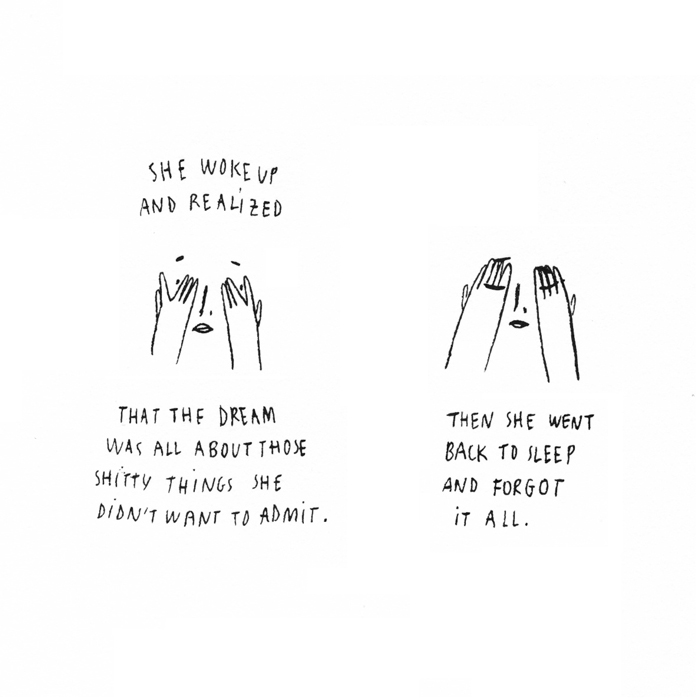 SHE WOKE UP
AND REALiZED
THAT THE DREAM
WAS ALL ABOUT THOSE
SHiTTY THiNGS SHE
DiDN'T WANT TO ADMiT.
THEN SHE WENT
BACK TO SLEEP
AND FORGOT
iT ALL.